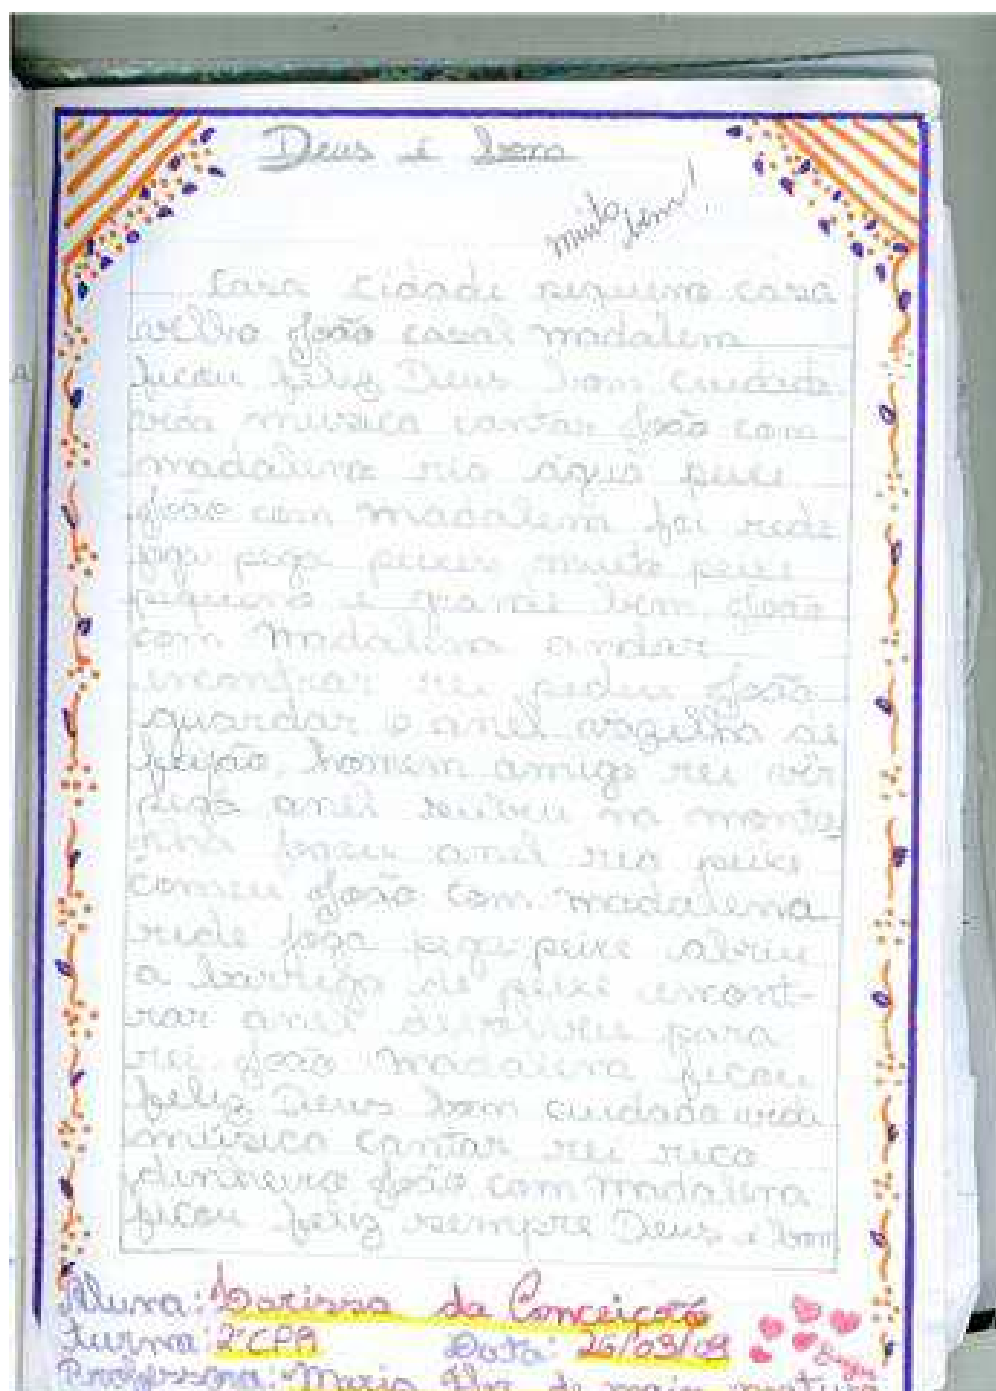 Deus é bom
muito bem!
Casa cidade pequeno casa
velho João casal madalena
ficou feliz Deus bom cuidado
vida musica cantar João com
madalena rio água peixe
João com madalena foi rede
joga pega peixes muito peixe
pequeno e grande bem João
com Madalena andar
encontrar rei pedeu João
guardar o anel de
feijão, homem amigo rei vir
pega anel subiu na monta
nha jogou anel rio peixe
comeu João com madalena
rede joga pega peixe abriu
a barriga de peixe encont-
rar anel para
rei João Madalena ficou
feliz Deus bom cuidado vida
música cantar rei rico
dinheiro João com madalena
ficou feliz sempre Deus é bom
Aluna: Larissa da Conceição
Turma: 2ª CPA Data: 26/03/09
Professora: Maria